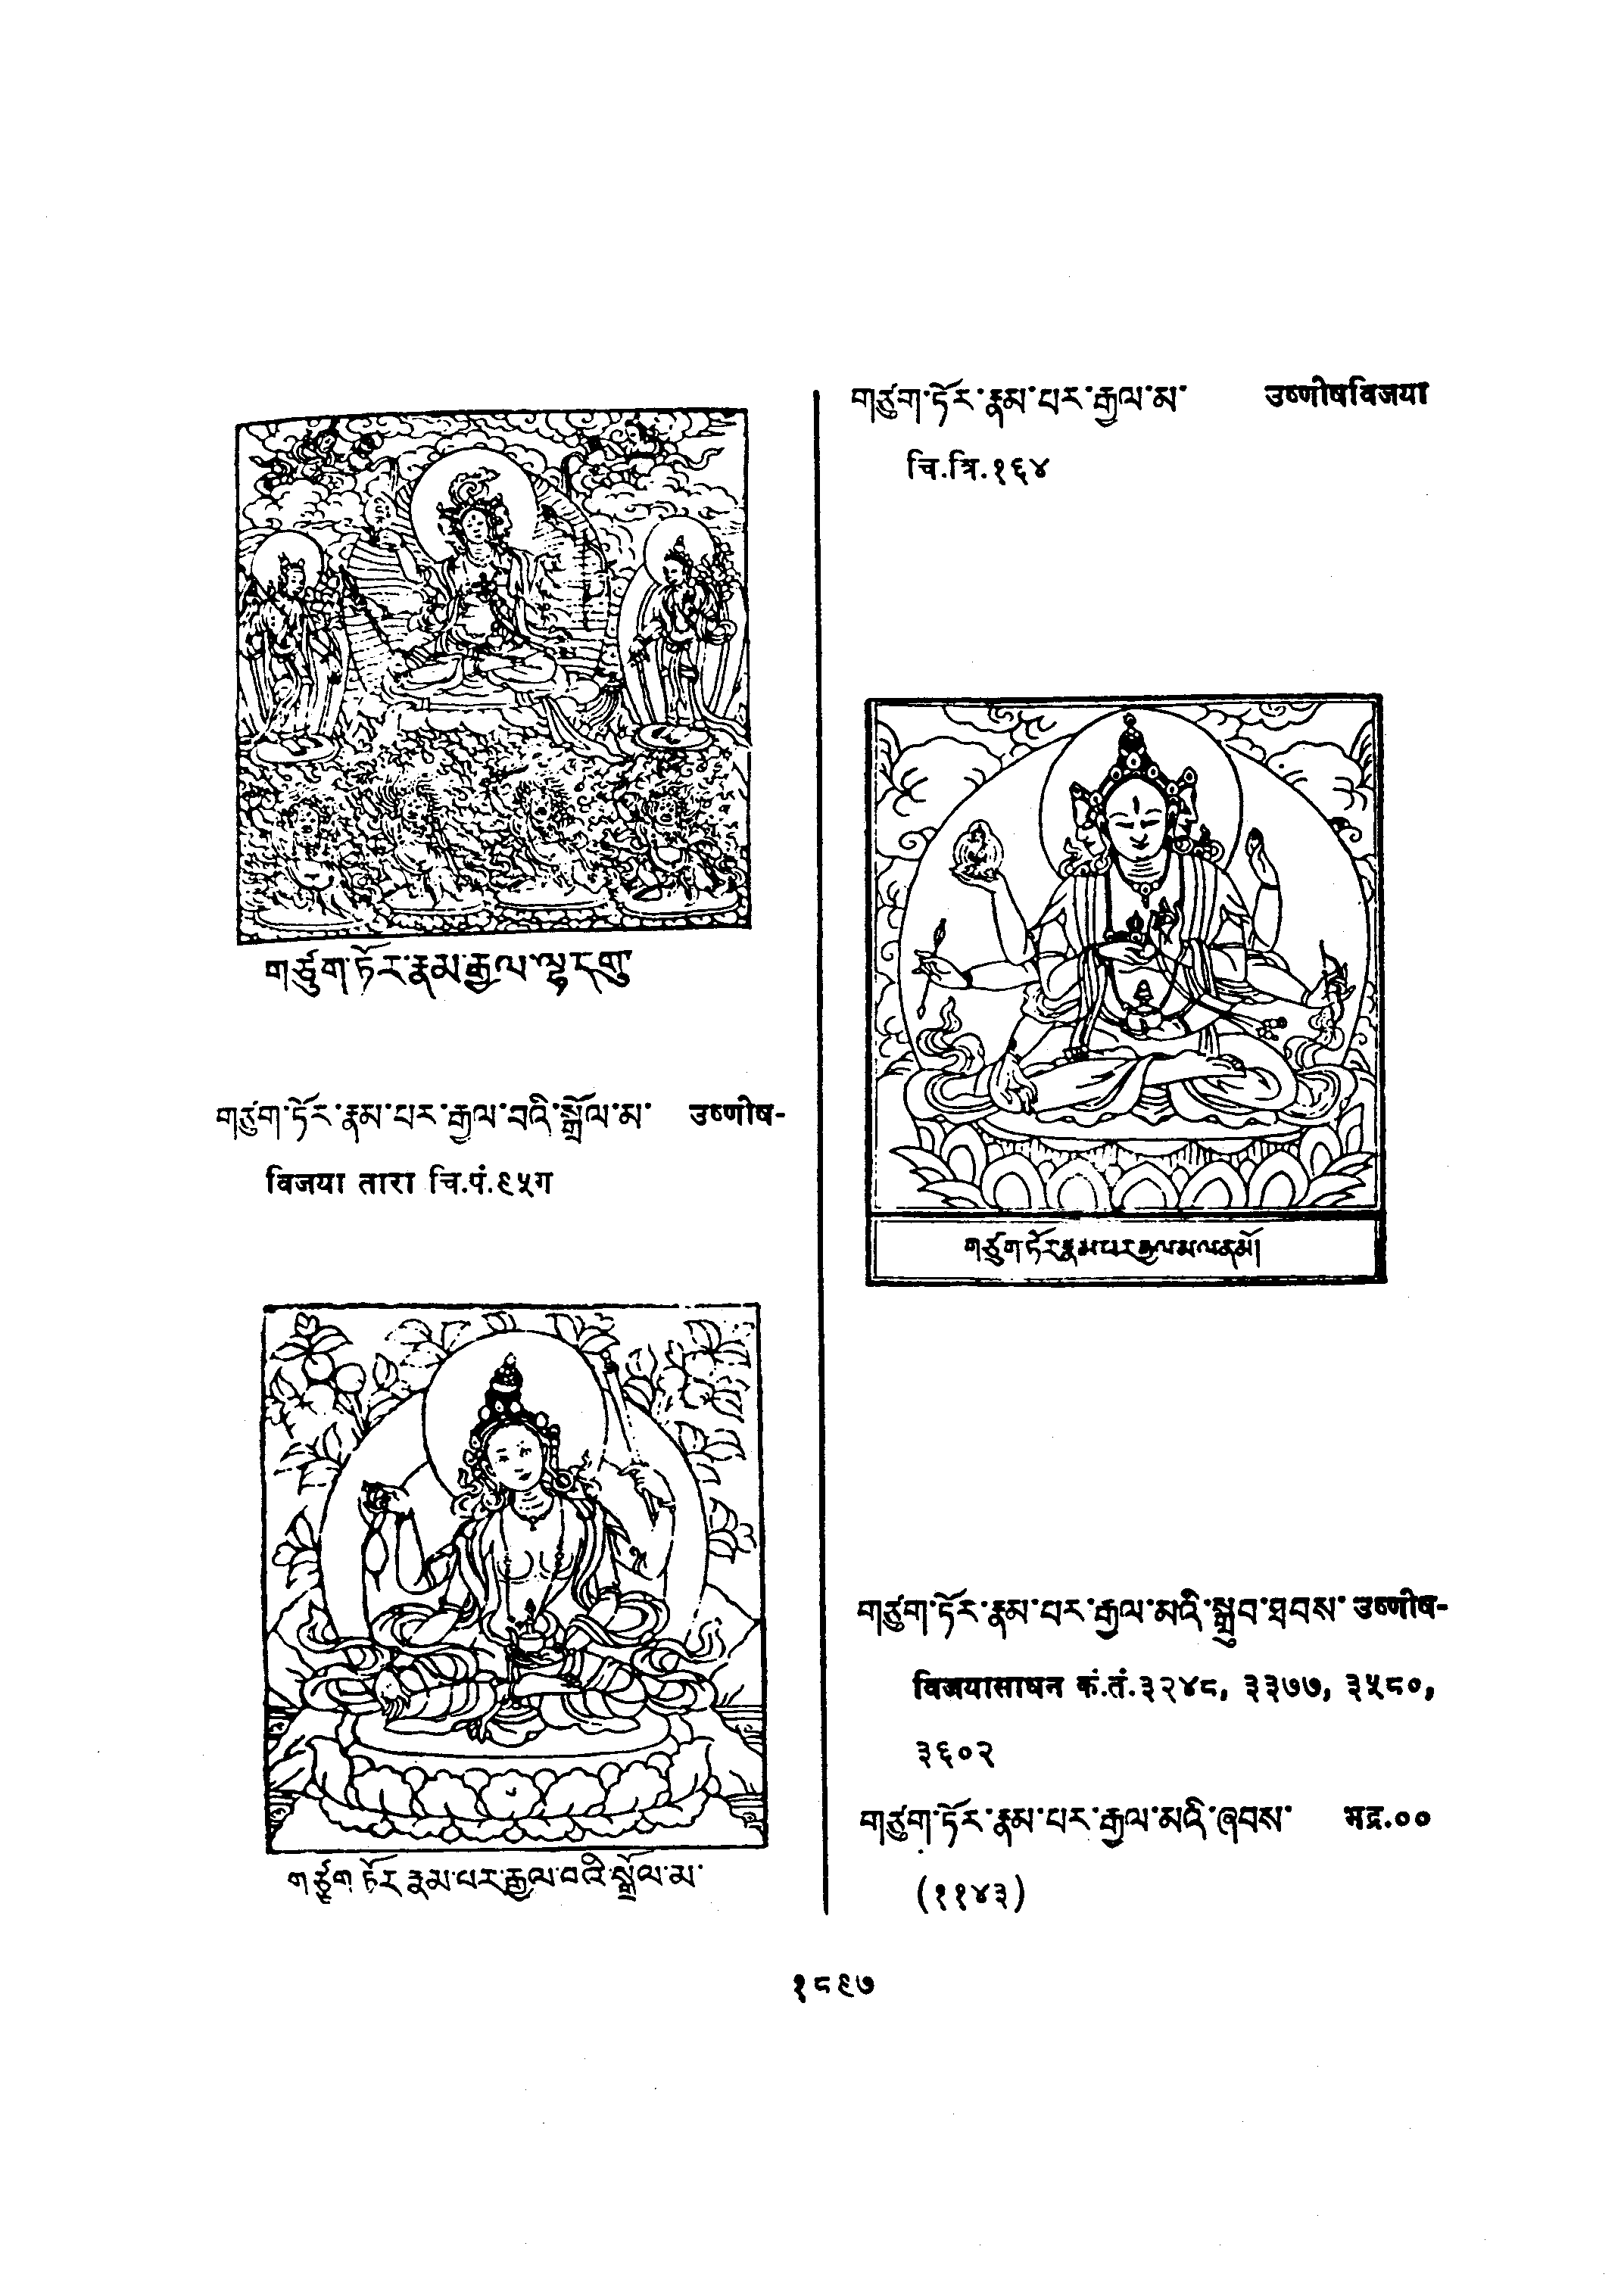 གཙུག་ཏོར་རྣམ་རྒྱལ་ལྷ་དགུ་
གཙུག་ཏོར་རྣམ་པར་རྒྱལ་བའི་སྒྲོལ་མ་ उष्णीष-
विजया तारा चि.पं.९५ग
གཙུག་ཏོར་རྣམ་པར་རྒྱལ་བའི་སྒྲོལ་མ་
གཙུག་ཏོར་རྣམ་པར་རྒྱལ་མ་ उष्णीषविजया
चि.त्रि.१६४
གཙུག་ཏོར་རྣམ་པར་རྒྱལ་མ་ལ་ན་མོ།
གཙུག་ཏོར་རྣམ་པར་རྒྱལ་མའི་སྒྲུབ་ཐབས་ उष्णीष-
विजयासाधन कं.तं.३२४८, ३३७७, ३५८०,
३६०२
གཙུག་ཏོར་རྣམ་པར་རྒྱལ་མའི་ཞབས་ भद्र.००
(११४३)
१८९७